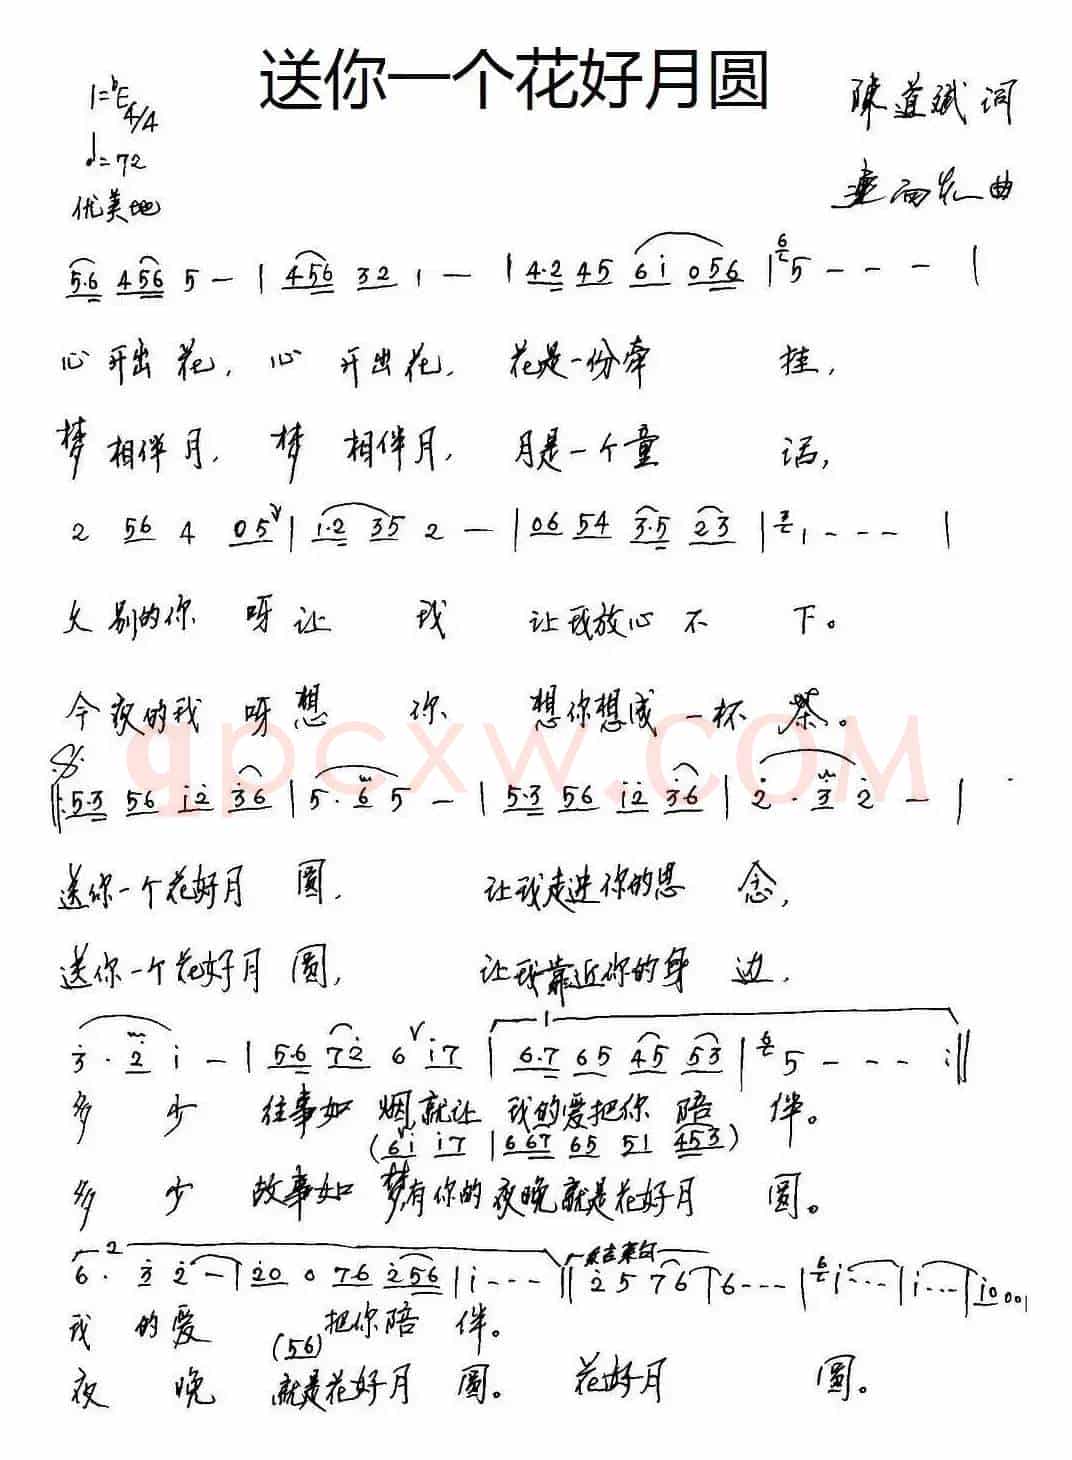 送你一个花好月圆
1=bE 4/4
陳道斌 词
♩=72
曲
优美地
5·6 456 5 — | 456 32 1 — | 4·2 45 6i 056 | 5 - - - |
心开出花，心开出花，花是一份牵挂，
梦相伴月，梦相伴月，月是一个童话，
2 56 4 05 | 1·2 35 2 — | 06 54 3·5 23 | 1 - - - |
久别的你呀让我让我放心不下。
今夜的我呀想你想你想成一杯茶。
qpcxw.COM
5·3 56 i2 36 | 5· 6 5 — | 5·3 56 i2 36 | 2· 3 2 — |
送你一个花好月圆，让我走进你的思念，
送你一个花好月圆，让我靠近你的身边，
3· 2 i — | 5·6 72 6 i7 | 6·7 65 45 53 | 5 - - - :||
多少往事如烟就让我的爱把你陪伴。
(6i i7 | 667 65 51 453)
多少故事如梦有你的夜晚就是花好月圆。
结束句
6· 3 2 — | 20 0 76 256 | i - - - || 2 5 7 6 | 6 - - - | i - - - | i - - - | i0 00 |
我的爱把你陪伴。
(56)
夜晚就是花好月圆。花好月圆。